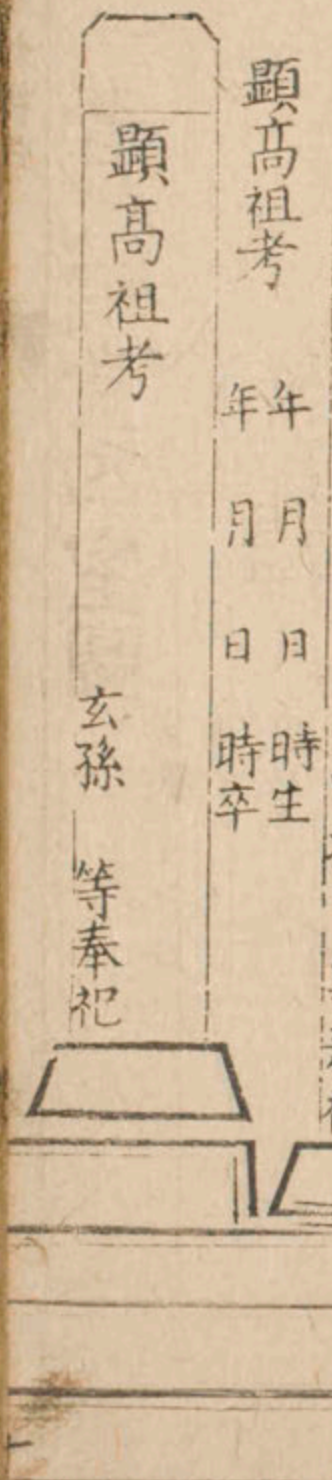 顯高祖考
年月日時生
年月日時卒
顯高祖考
玄孫 等奉祀